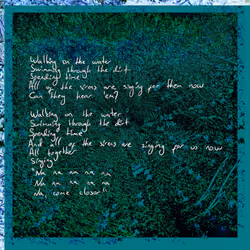 Walking on the water
Swimming through the dirt
Spending time
All of the sirens are singing for them now
Can they hear 'em?
Walking on the water
Swimming through the dirt
Spending time
And all of the sirens are singing for us now
All together
Singing
"Na na na na na
Na na na na na
Na, come closer"